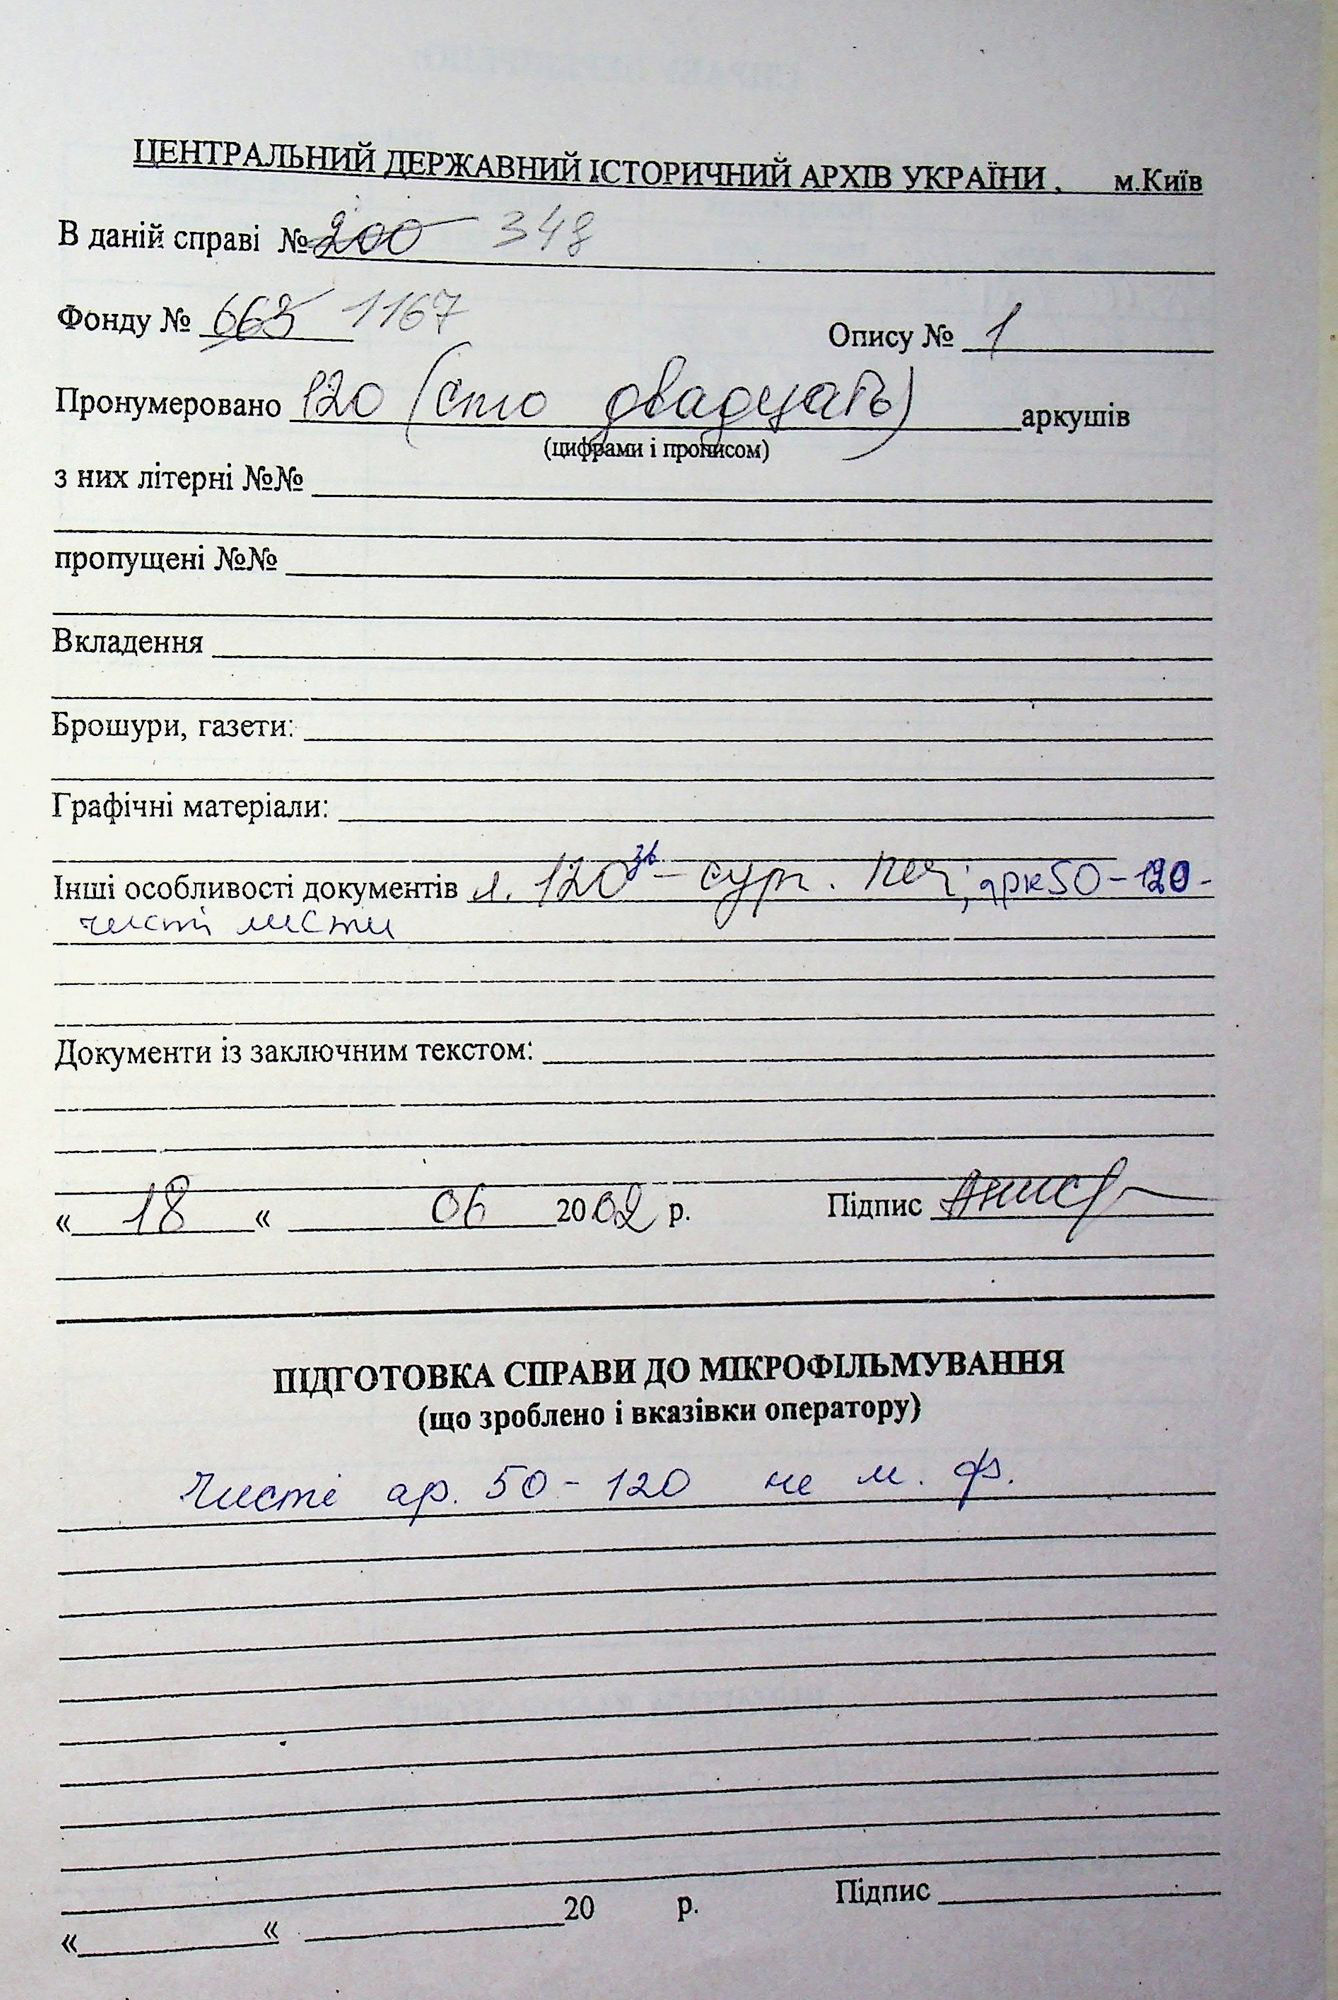 ЦЕНТРАЛЬНИЙ ДЕРЖАВНИЙ ІСТОРИЧНИЙ АРХІВ УКРАЇНИ, м.Київ
В даній справі № 200 348
Фонду № 663 1167 Опису № 1
Пронумеровано 120 (сто двадцать) аркушів
(цифрами і прописом)
з них літерні №№
пропущені №№
Вкладення
Брошури, газети:
Графічні матеріали:
Інші особливості документів л. 120 зв - сург. печ; арк 50-120 -
чисті листи
Документи із заключним текстом:
« 18 « 06 2002 р. Підпис
ПІДГОТОВКА СПРАВИ ДО МІКРОФІЛЬМУВАННЯ
(що зроблено і вказівки оператору)
Чисті ар. 50-120 не м. ф.
« « 20 р. Підпис